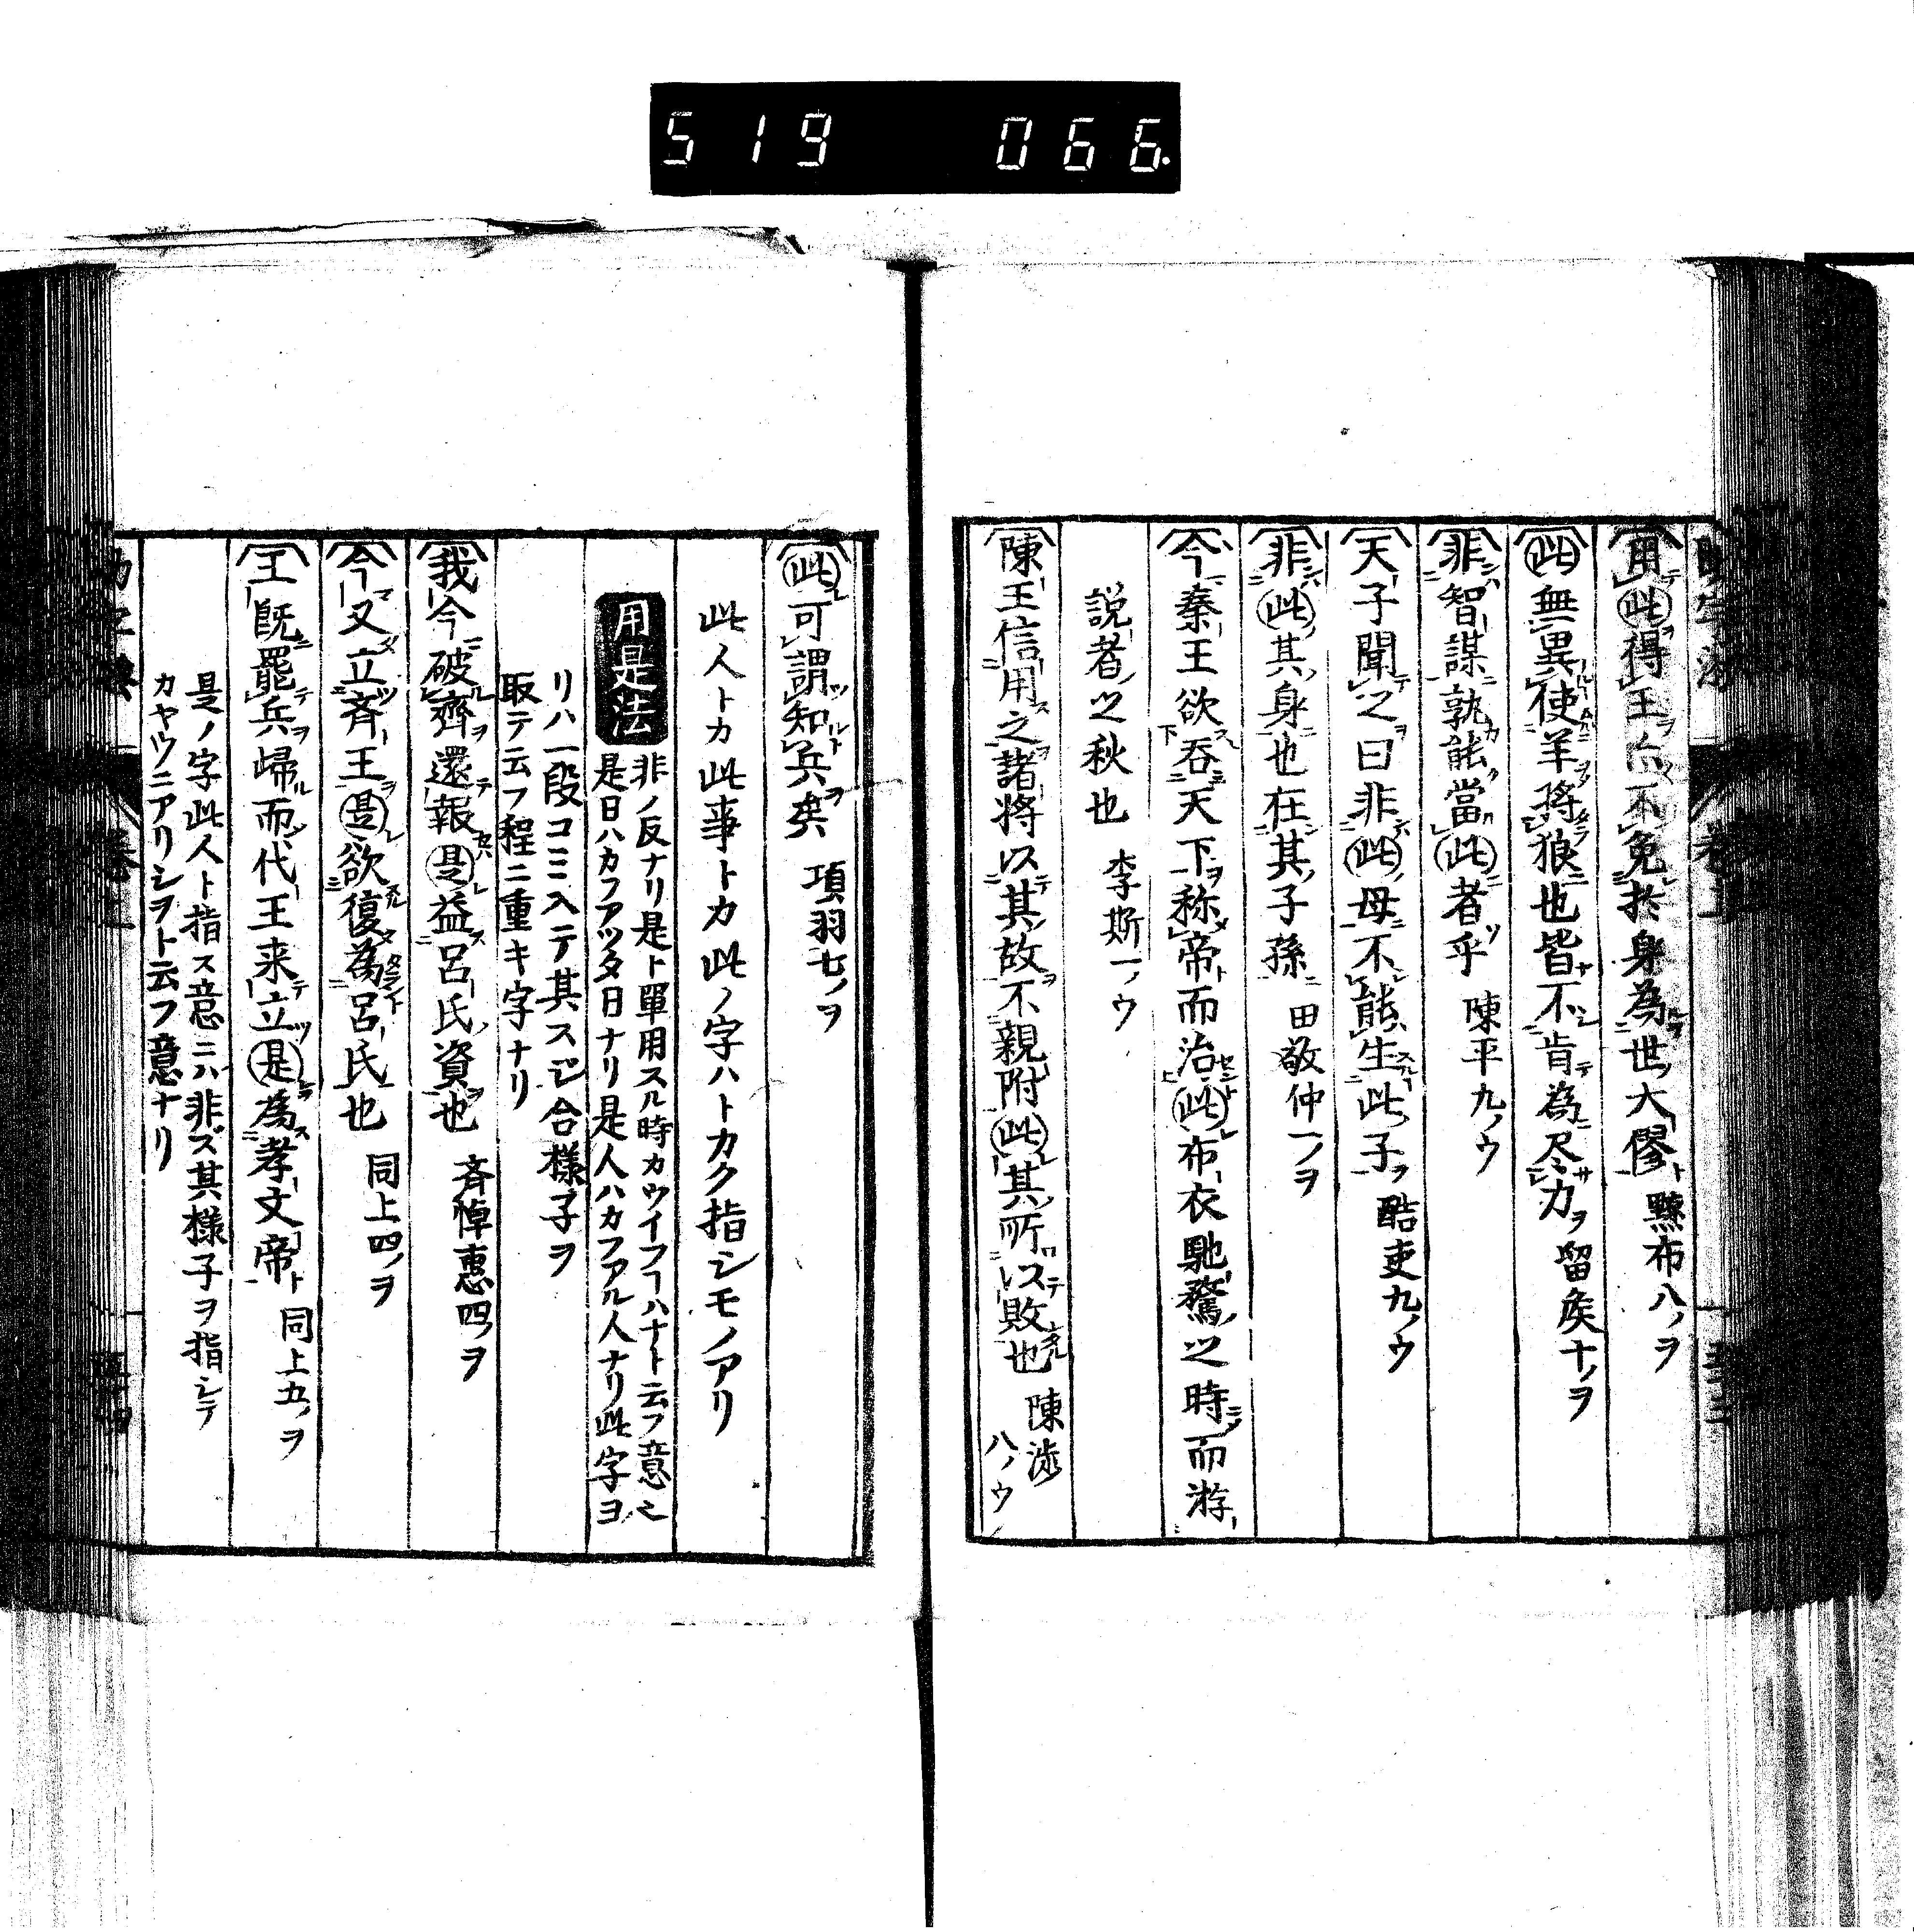 519 066.
用此得王亦不免於身為世大僇 黥布八ノヲ
此無異使羊將狼也皆不肯為尽力 留矦十ノヲ
非智謀孰能當此者乎 陳平九ノウ
天子聞之曰非此母不能生此子 酷吏九ノウ
非此其身也在其子孫 田敬仲一ノヲ
今秦王欲吞天下称帝而治此布衣馳騖之時而游
説者之秋也 李斯一ノウ
陳王信用之諸將以其故不親附此其所以敗也 陳渉八ノウ
此可謂知兵矣 項羽七ノヲ
此人トカ此事トカ此ノ字ハトカク指シモノアリ
用是法
非ノ反ナリ是ト單用スル時カウイフヿハナト云フ意之
是日ハカフアツタ日ナリ是人ハカファル人ナリ此字ヨ
リハ一段コミ入テ其スヂ合様子ヲ
取テ云フ程ニ重キ字ナリ
我今破齊還報是益呂氏資也 斉悼惠四ノヲ
今又立斉王是欲復為呂氏也 同上四ノヲ
王既罷兵歸而代王来立是為孝文帝 同上五ノヲ
是ノ字此人ト指ス意ニハ非ズ其様子ヲ指シテ
カヤウニアリシヲト云フ意ナリ